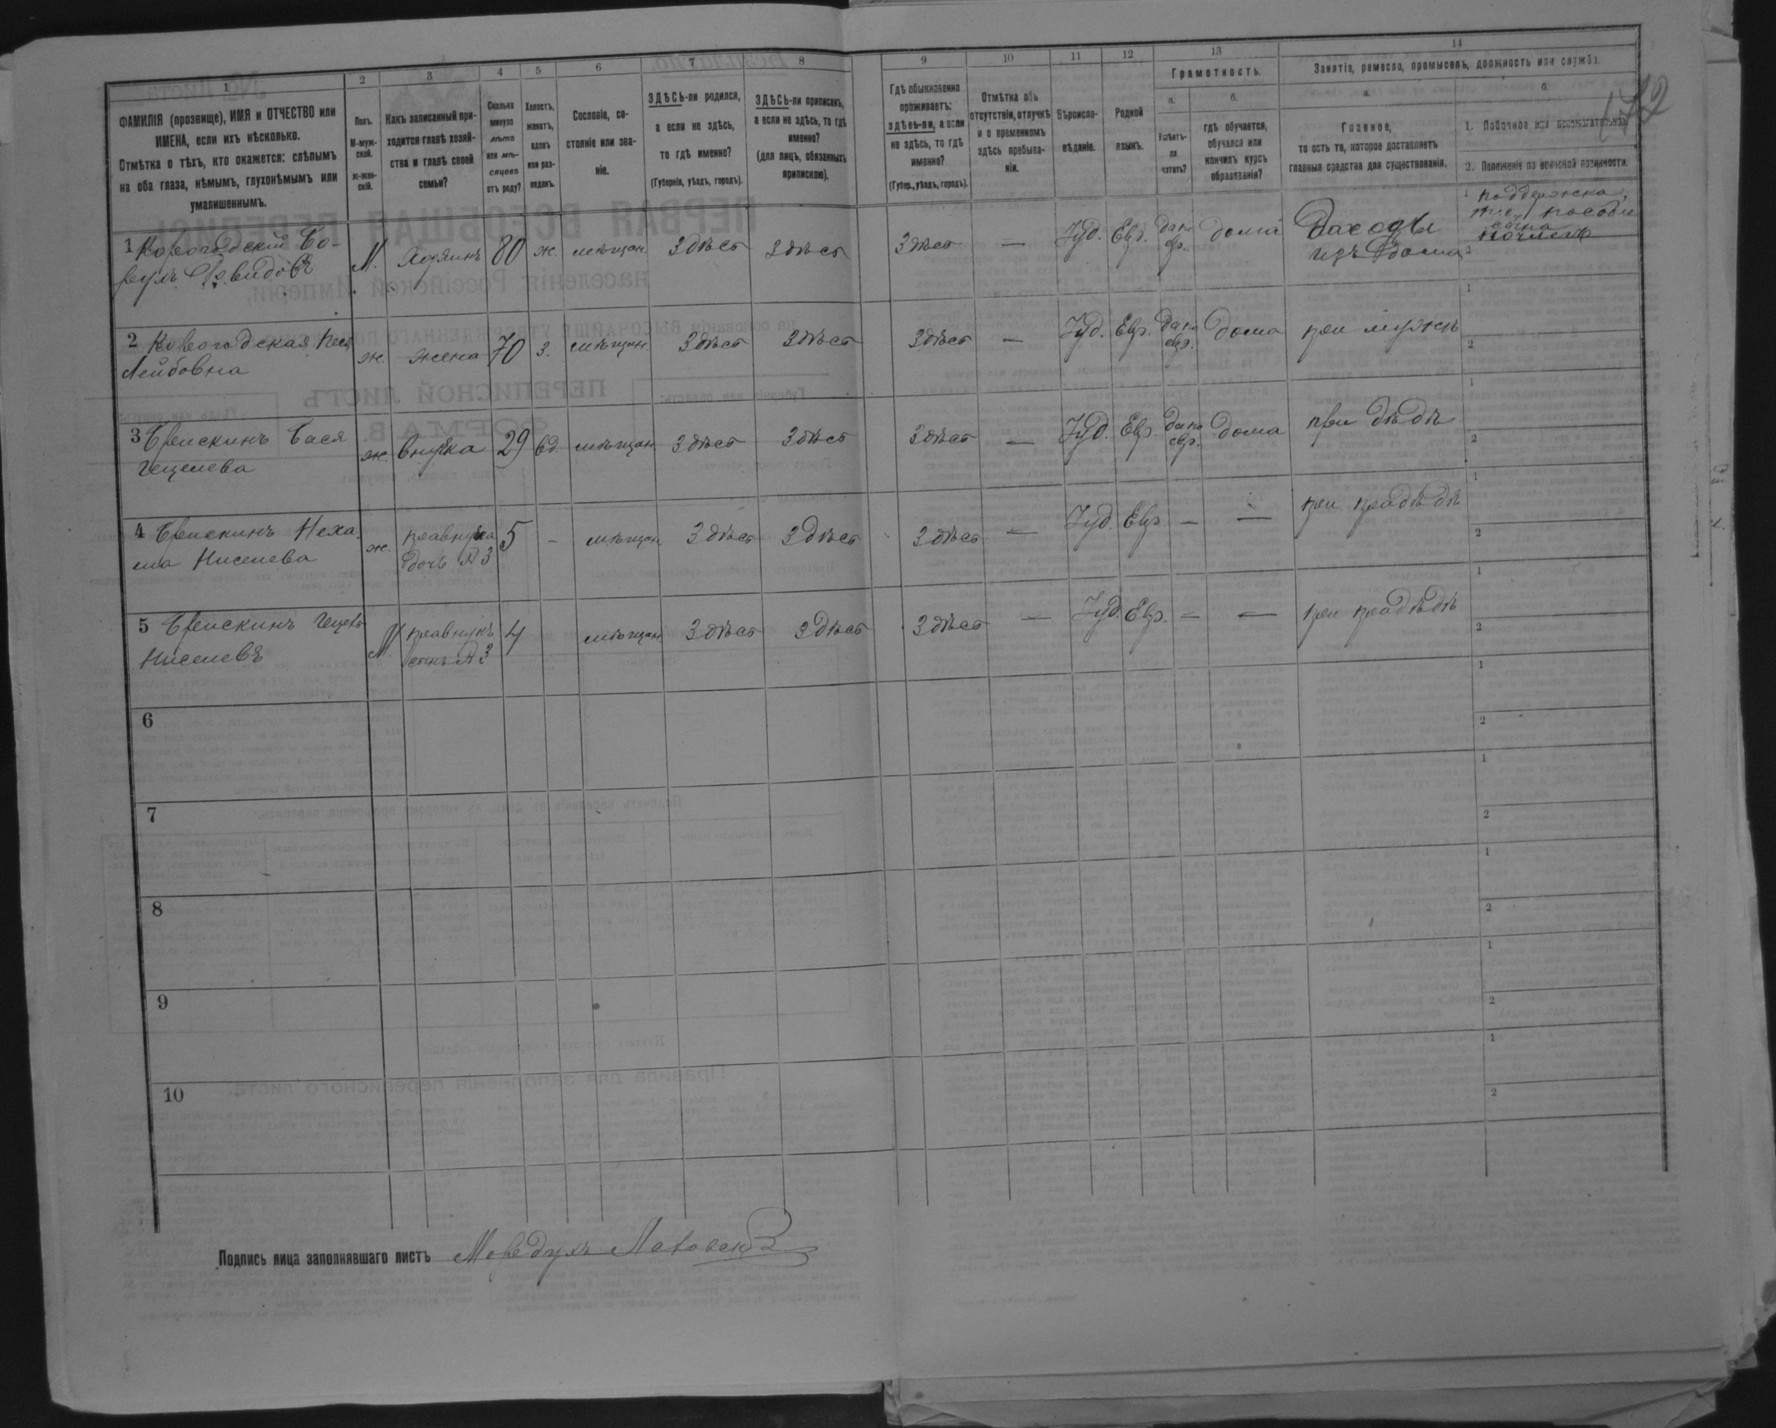 1 2 3 4 5 6 7 8 9 10 11 12 13 14
ФАМИЛІЯ (прозвище), ИМЯ и ОТЧЕСТВО или
ИМЕНА, если ихъ нѣсколько.
Отмѣтка о тѣхъ, кто окажется: слѣпымъ
на оба глаза, нѣмымъ, глухонѣмымъ или
умалишеннымъ.
Полъ.
М-муж-
ской.
Ж-жен-
скій.
Какъ записанный при-
ходится главѣ хозяй-
ства и главѣ своей
семьи?
Сколько
минуло
лѣтъ
или мѣ-
сяцевъ
отъ роду?
Холостъ,
женатъ,
вдовъ
или раз-
веденъ.
Сословіе, со-
стояніе или зва-
ніе.
ЗДѢСЬ-ли родился,
а если не здѣсь,
то гдѣ именно?
(Губернія, уѣздъ, городъ).
ЗДѢСЬ-ли приписанъ,
а если не здѣсь, то гдѣ
именно?
(для лицъ, обязанныхъ
припискою).
Гдѣ обыкновенно
проживаетъ:
здѣсь-ли, а если
не здѣсь, то гдѣ
именно?
(Губер., уѣздъ, городъ).
Отмѣтка объ
отсутствіи, отлучкѣ
и о временномъ
здѣсь пребыва-
ніи.
Вѣроиспо-
вѣданіе.
Родной
языкъ.
Грамотность.
а.
Умѣетъ-
ли
читать?
б.
гдѣ обучается,
обучался или
кончилъ курсъ
образованія?
Занятіе, ремесло, промыселъ, должность или служба.
а.
Главное,
то есть то, которое доставляетъ
главныя средства для существованія.
б.
1. Побочное или вспомогательное.
2. Положеніе по воинской повинности.
172
1 Новогодскій
М. Хозяинъ 80 ж. мѣщан. Здѣсь Здѣсь Здѣсь — Іуд. Евр. да по евр. дома Доходы изъ дома
1 поддержка,
пособіе
2
2 Новогодская Песя
Лейбовна
ж. жена 70 з. мѣщан. Здѣсь Здѣсь Здѣсь — Іуд. Евр. да по евр. дома при мужѣ
1
2
3 Брискинъ Бася
Гецелева
ж. внучка 29 вд. мѣщан. Здѣсь Здѣсь Здѣсь — Іуд. Евр. да по евр. дома при дѣдѣ
1
2
4 Брискинъ Неха
ма Нисилева
ж. правнучка
дочь № 3
5 - мѣщан. Здѣсь Здѣсь Здѣсь — Іуд. Евр. — — при прадѣдѣ
1
2
5 Брискинъ Гецель
Нисилевъ
М. правнукъ
сынъ № 3
4 мѣщан. Здѣсь Здѣсь Здѣсь — Іуд. Евр. — — при прадѣдѣ
1
2
6
1
2
7
1
2
8
1
2
9
1
2
10
1
2
Подпись лица заполнявшаго листъ